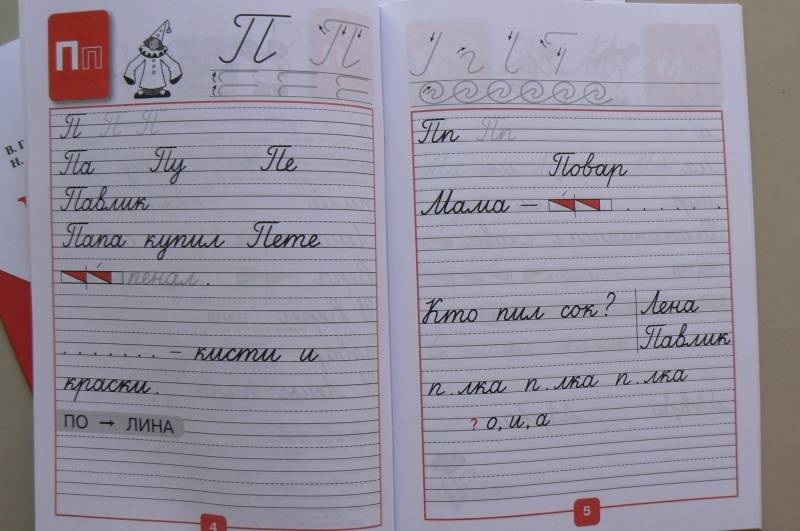 Пп
П П
П П П
Па Пу Пе
Павлик
Папа купил Пете
пенал.
. . . . . . . – кисти и
краски.
ПО → ЛИНА
4
Пп Пп
Повар
Мама – . . . . . . .
Кто пил сок? Лена
Павлик
п.лка п.лка п.лка
? о, и, а
5